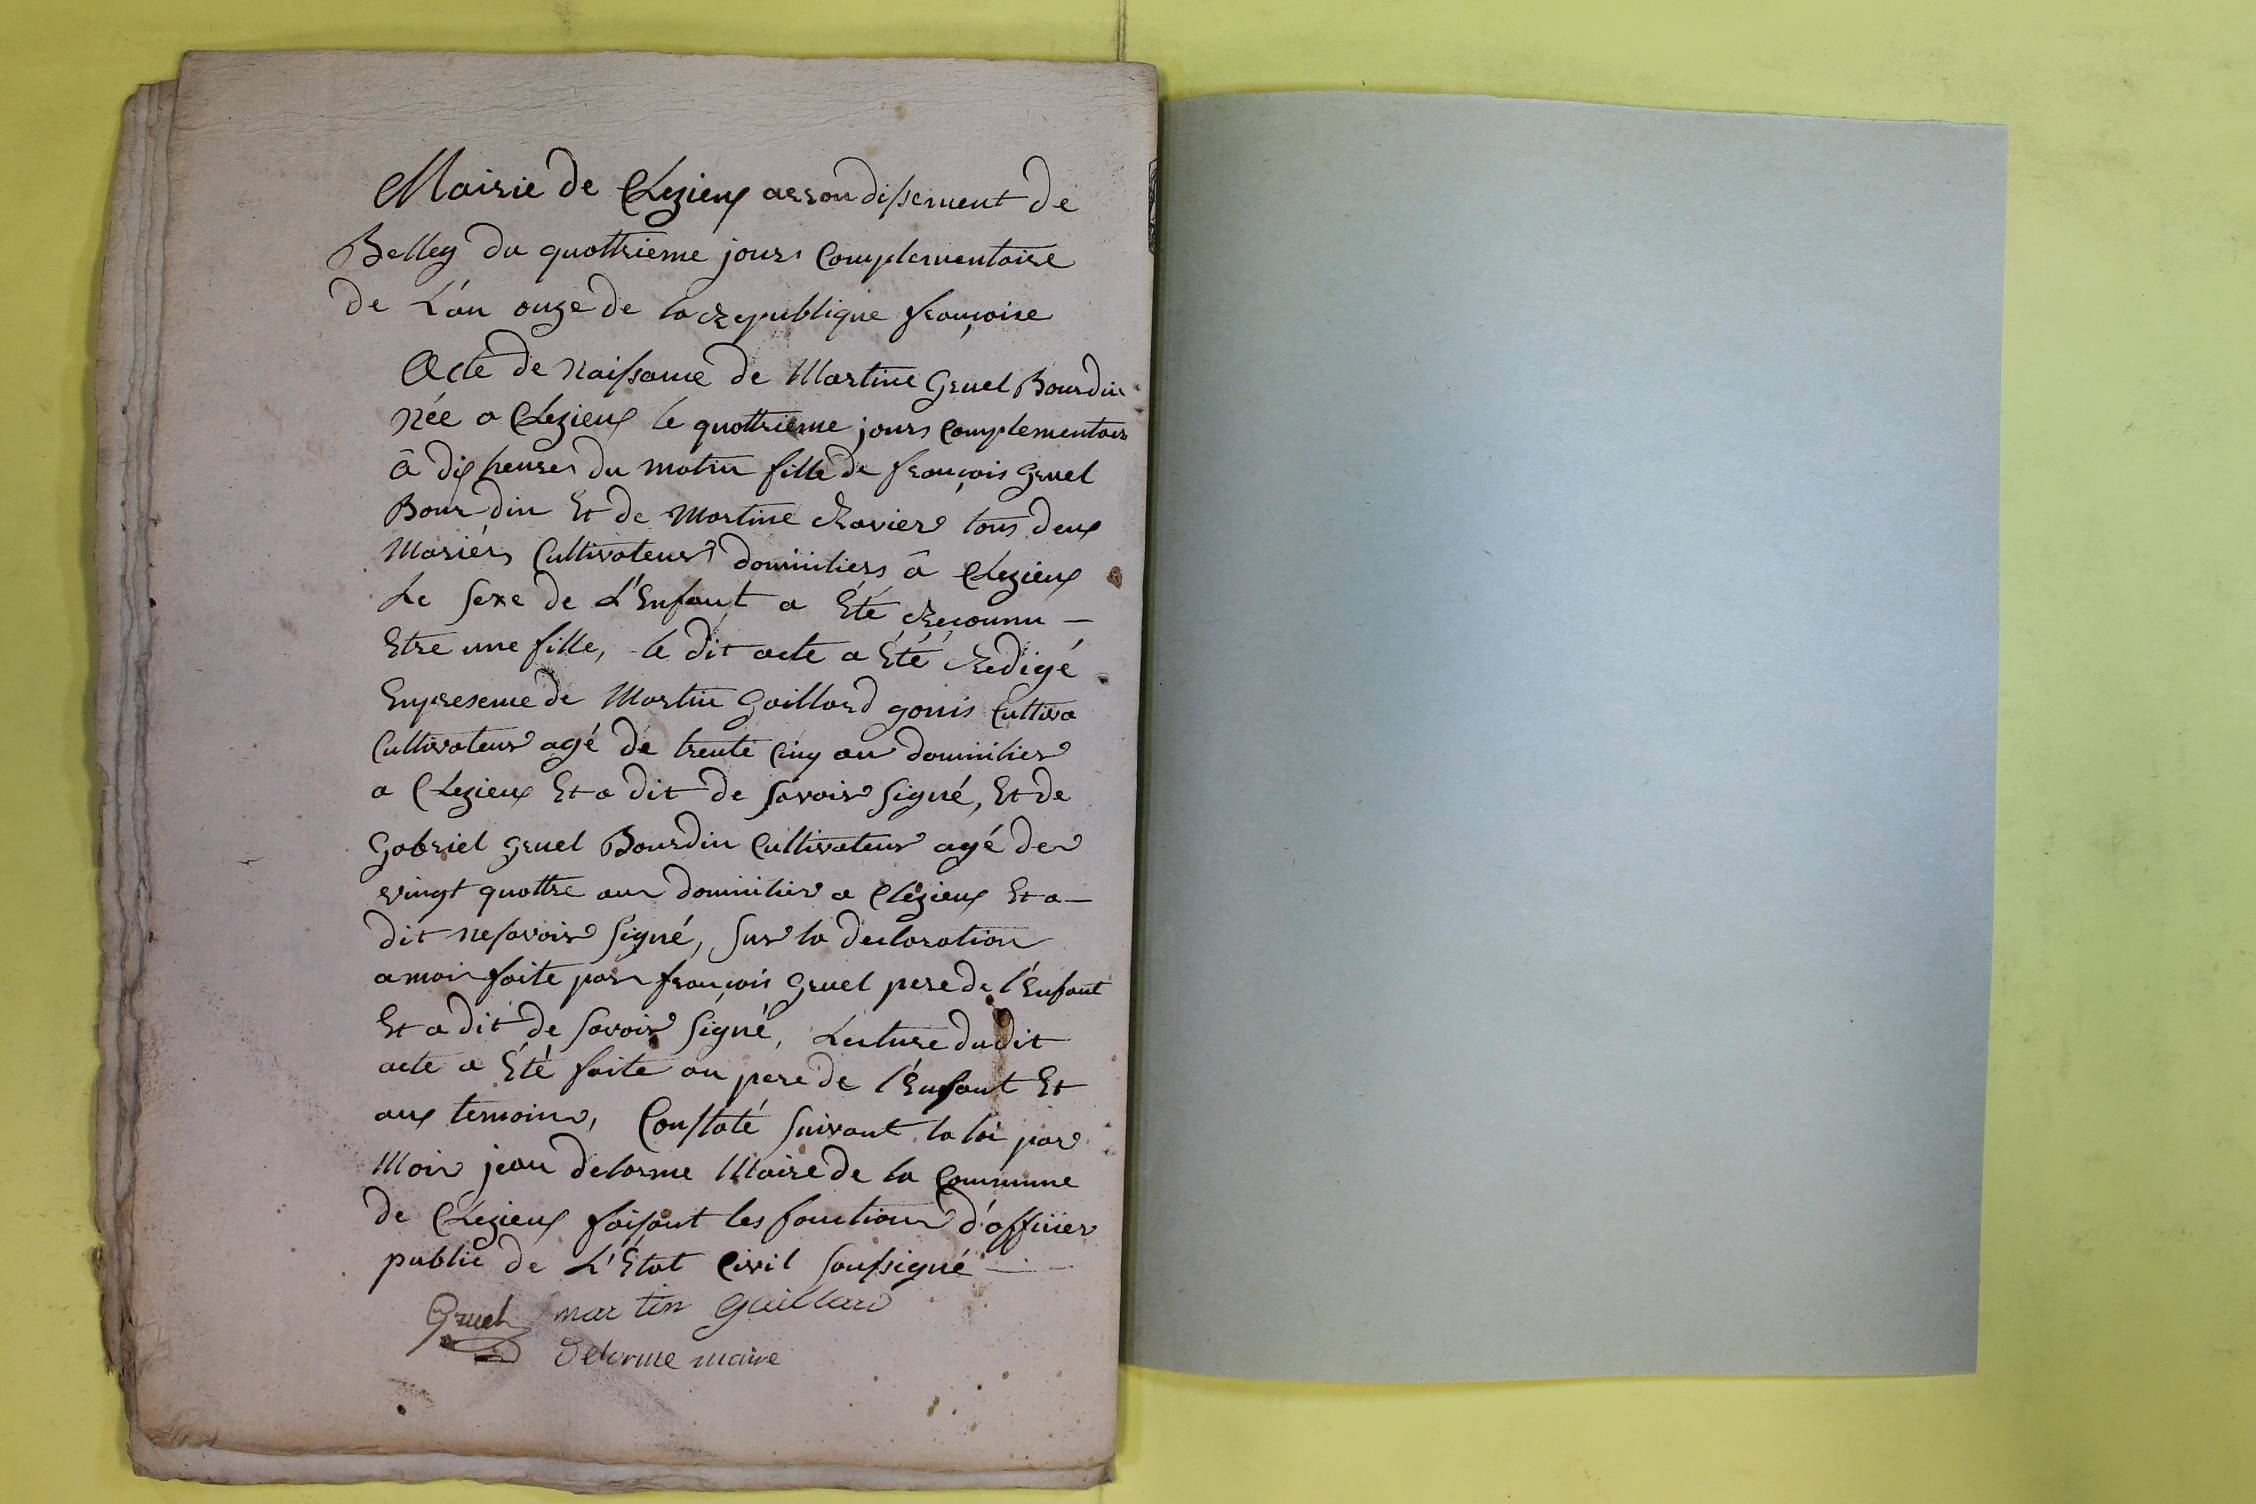 Mairie de Chezieux arrondissement de
Belley du quottrieme jours complementaire
de L'an onze de la Republique françoise
Acte de Naissance de Martine Gruel Bourdin
Née a Chezieux le quottrieme jours complementair
â dix heures du matin fille de françois Gruel
Bourdin Et de Martine Ravier tous deux
Mariérs Cultivateurs domiciliers â Chezieux
Le sexe de L'Enfant a Été Reconnu -
Etre une fille, le dit acte a Été Redigé
Enpresence de Martin Gaillard gonis Cultiva
Cultivateur agé de trente cinq an domicilier
a Chezieux Et a dit de savoir signé, Et de
Gabriel Gruel Bourdin Cultivateur agé de
vingt quottre ans domicilier a Chezieux Et a -
dit ne savoir signé, sur la declaration
a moi faite par françois Gruel pere de l'Enfant
Et a dit de savoir signé, Lecture du dit
acte a Été faite au pere de l'Enfant Et
aux temoins, Constaté suivant la loi par
Moi jean delorme Maire de la Commune
de Chezieux faisant les fonctions d'officier
public de L'État Civil soussigné
Gruel martin gaillard
Delorme maire